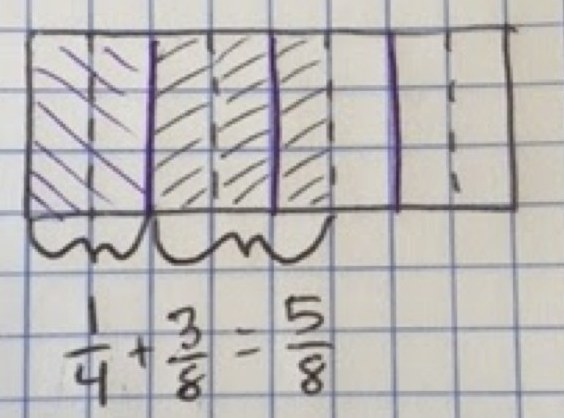 1/4 + 3/8 = 5/8